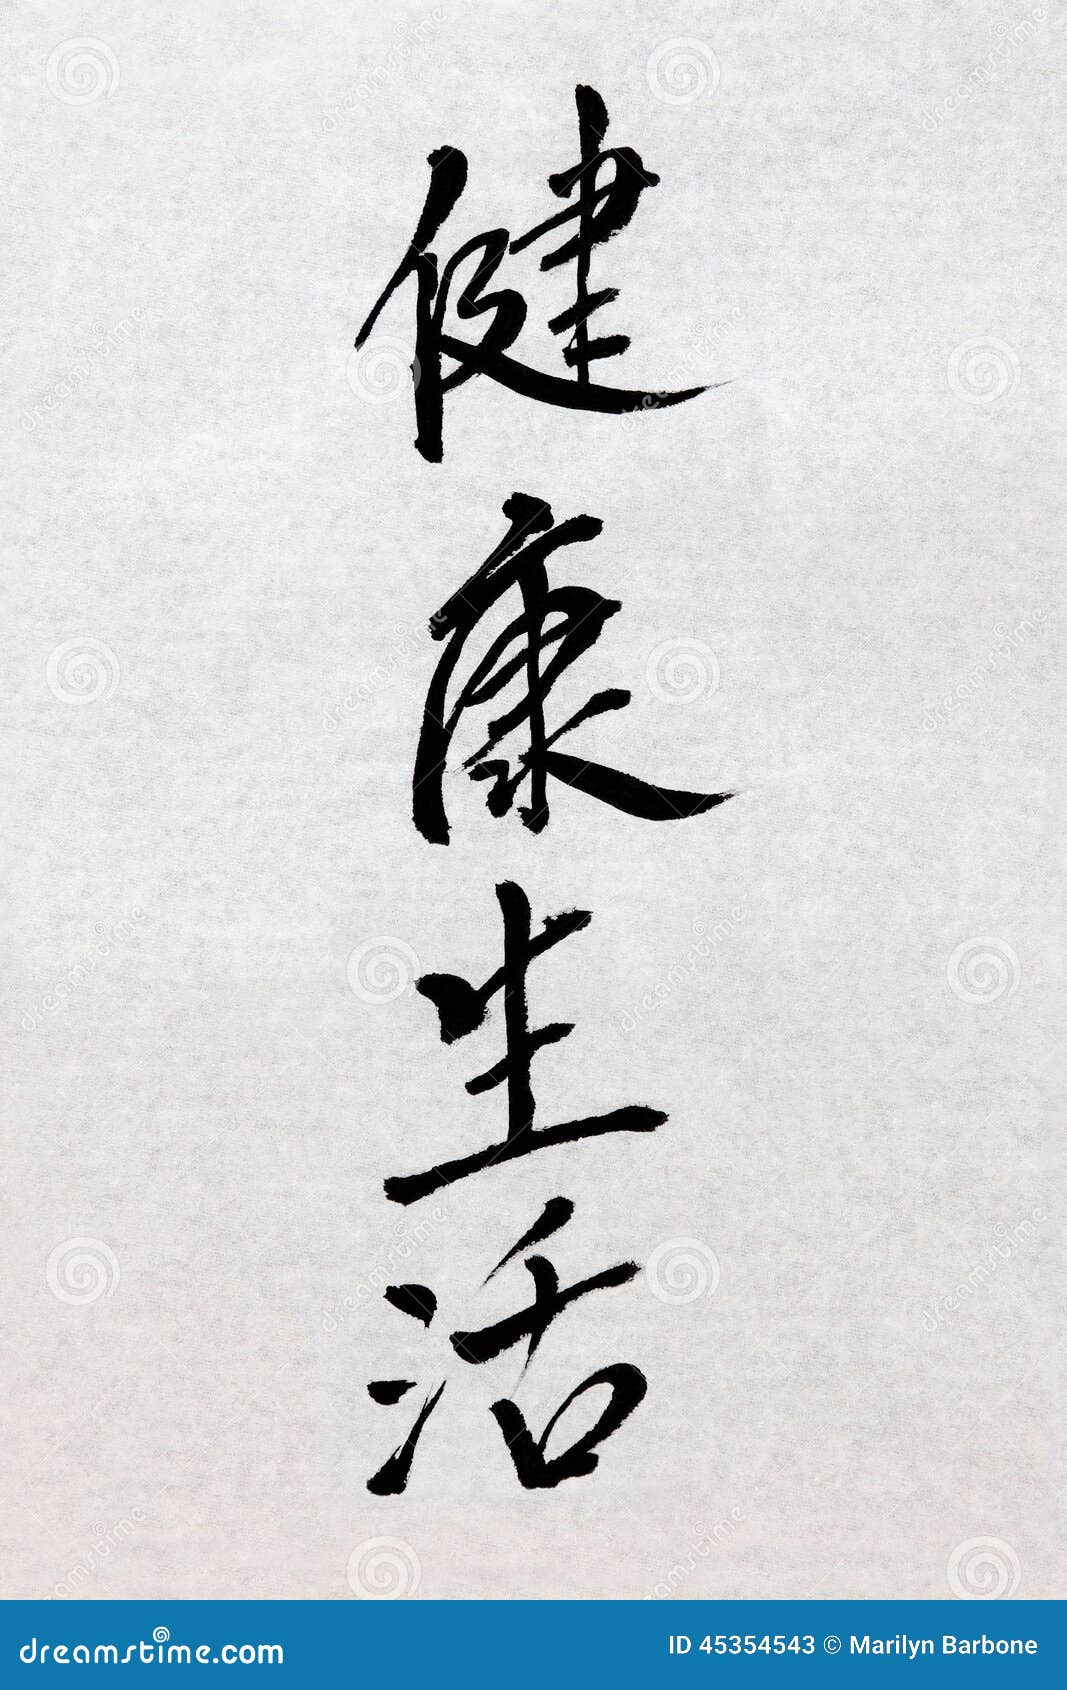 健康生活
dreamstime.com
ID 45354543 © Marilyn Barbone